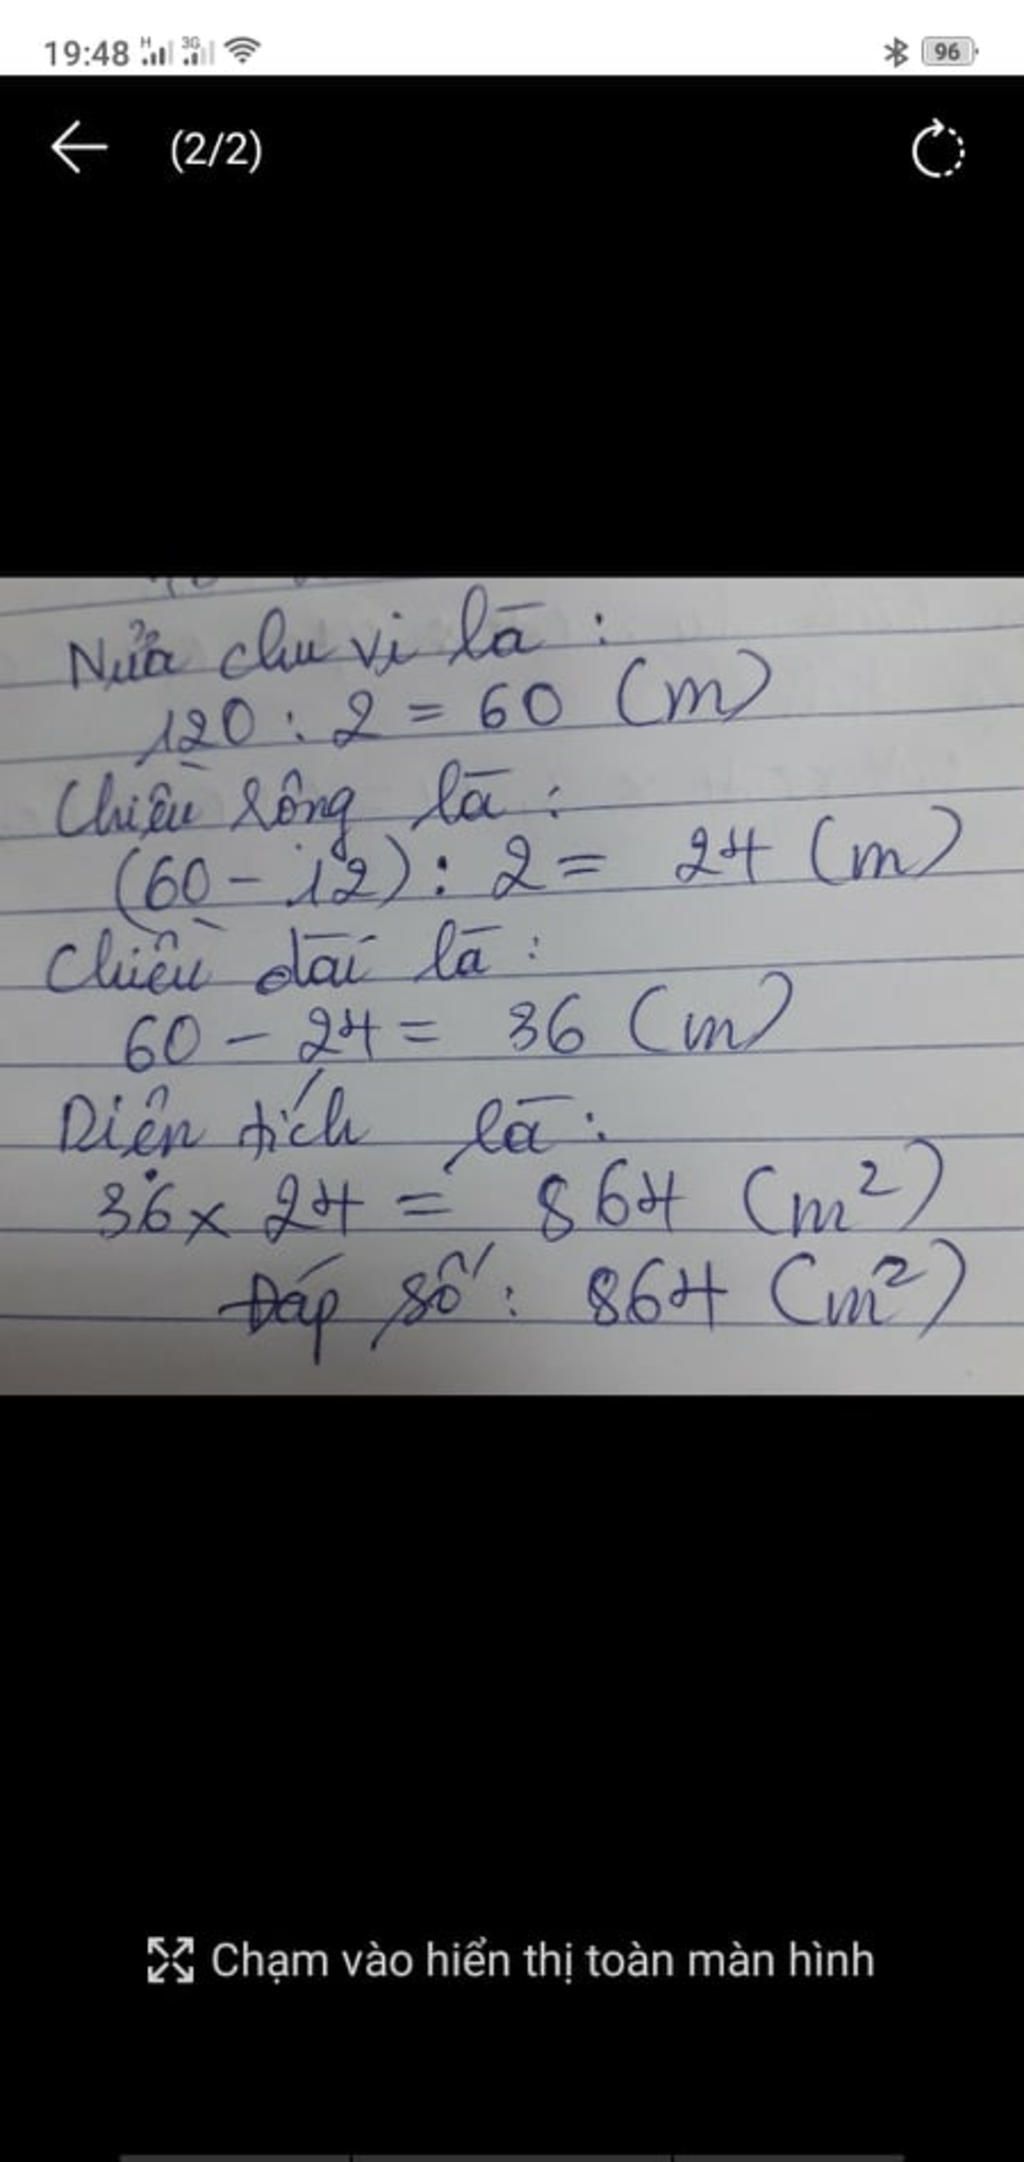 19:48 H 3G 96
(2/2)
Nửa chu vi là :
120 : 2 = 60 (m)
Chiều rộng là :
(60 - 12) : 2 = 24 (m)
Chiều dài là :
60 - 24 = 36 (m)
Diện tích là :
36 x 24 = 864 (m²)
Đáp số : 864 (m²)
Chạm vào hiển thị toàn màn hình